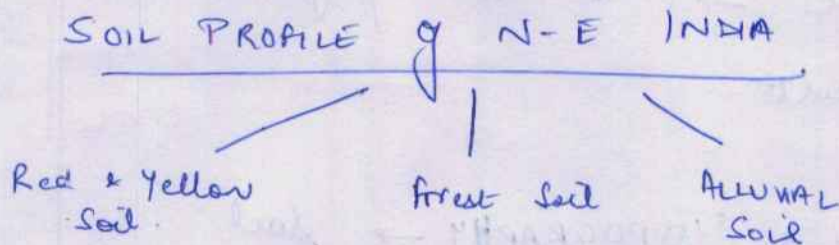 SOIL PROFILE of N-E INDIA
Red & Yellow Soil
Forest Soil
ALLUVIAL Soil